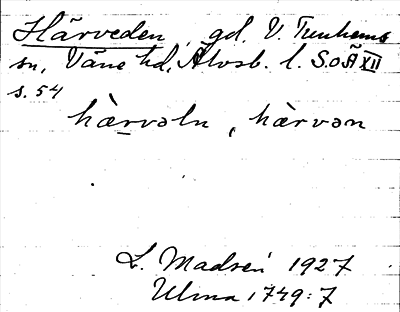 Härveden, gd. V. Tunhems
sn, Väne hd, Älvsb. l. S.o.Ä XII
s. 54
hà̀rvəln, hàrvən
L. Madsén 1927
Ulma 1749:7